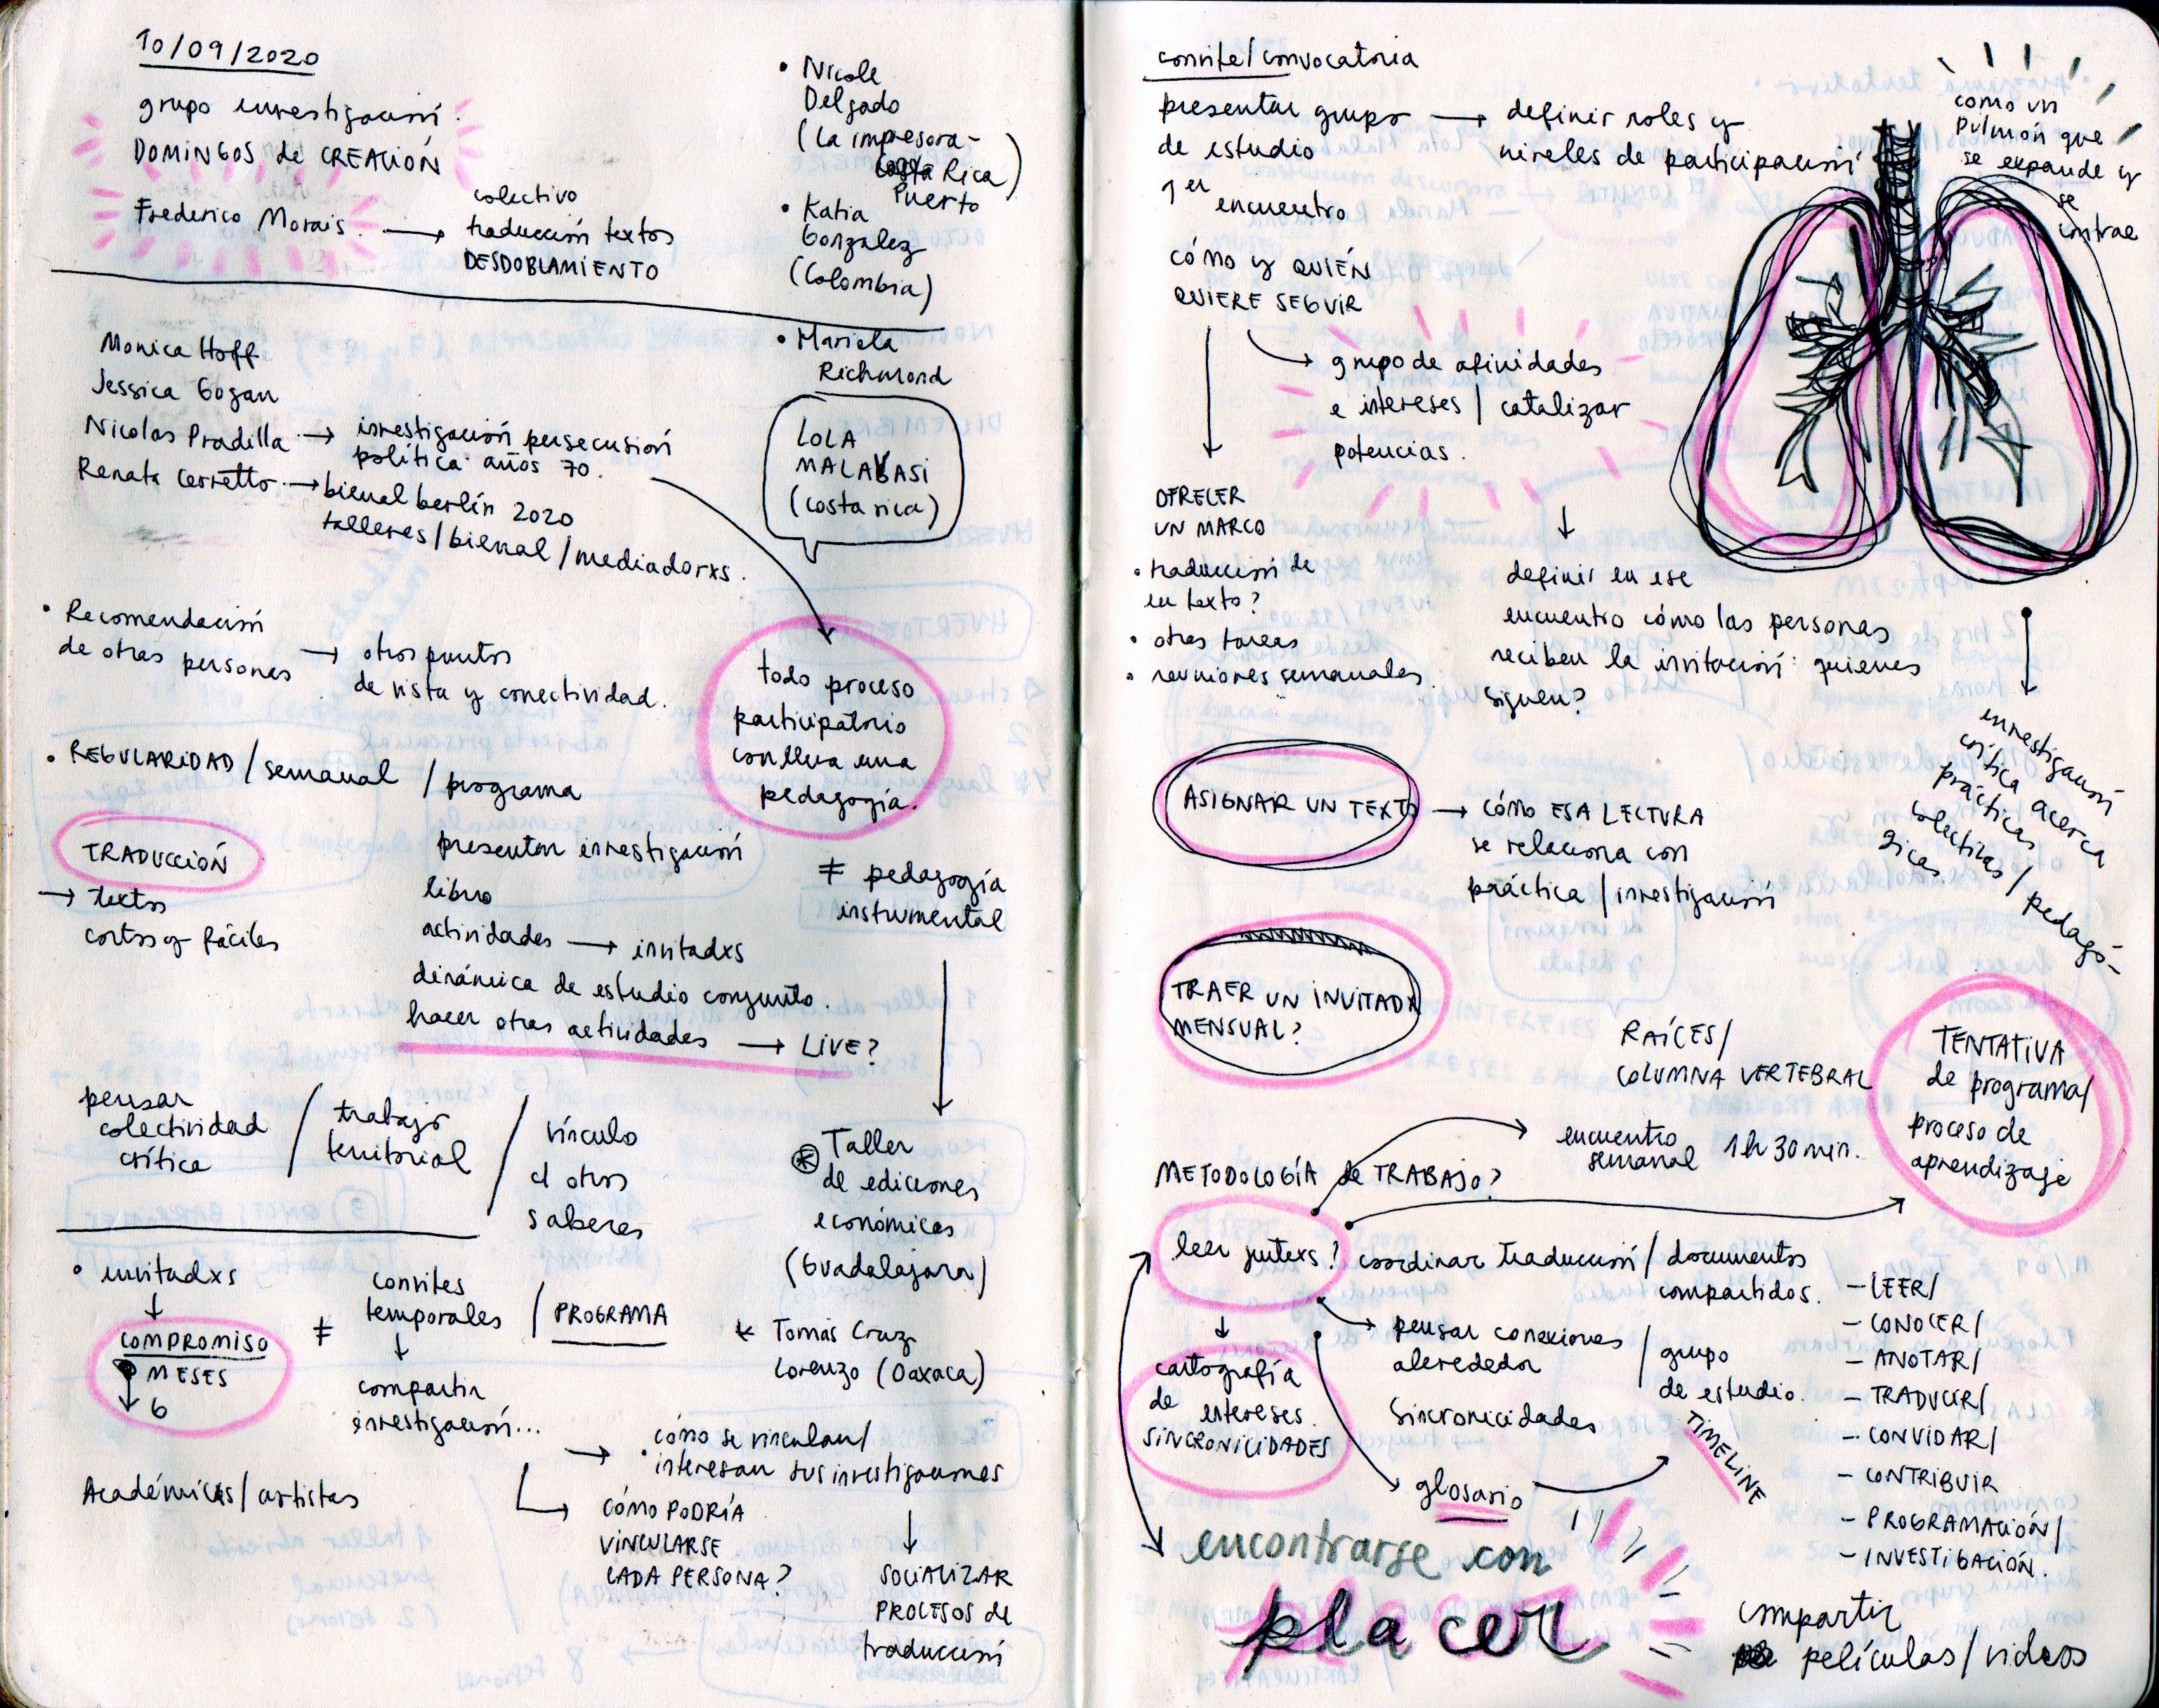 10/09/2020
grupo investigación.
DOMINGOS de CREACIÓN
Frederico Morais. →
colectivo
traducción textos
DESDOBLAMIENTO
• Nicole
Delgado
(La impresora-
Rica)
Puerto
• Katia
Gonzalez
(Colombia)
• Mariela
Richmond
LOLA
MALAVASI
(costa rica)
Monica Hoff
Jessica Gogan
Nicolas Pradilla → investigación persecusión
política años 70.
Renata Cervetto → bienal berlín 2020
talleres/bienal/mediadorxs.
• Recomendación
de otras personas → otros puntos
de vista y conectividad.
todo proceso
participatorio
conlleva una
pedagogía.
≠ pedagogía
instrumental
• REGULARIDAD/semanal /programa
TRADUCCIÓN
→ textos
cortos y fáciles
presentar investigación
libro
actividades → invitadxs
dinámica de estudio conjunto.
hacer otras actividades → LIVE?
pensar
colectividad
crítica
/ trabajo
territorial
/ vínculo
c/ otros
saberes
⊛ Taller
de ediciones
económicas
(Guadalajara)
* Tomás Cruz
Lorenzo (Oaxaca)
• invitadxs
↓
COMPROMISO
MESES
↓ 6
≠
convites
temporales
↓
compartir
investigación...
/ PROGRAMA
Académicxs/artistas
→ cómo se vinculan/
interesan sus investigaciones
CÓMO PODRÍA
VINCULARSE
CADA PERSONA?
↓
SOCIALIZAR
PROCESOS de
traducción
convite/convocatoria
presentar grupo → definir roles y
de estudio niveles de participación
1er
encuentro
cómo y QUIÉN
QUIERE SEGUIR
→ grupo de afinidades
e intereses / catalizar
potencias.
como un
pulmón que
se expande y
se
contrae
OFRECER
UN MARCO
• traducción de
un texto?
• otras tareas
• reuniones semanales.
↓
definir en ese
encuentro cómo las personas
reciben la invitación: quienes
siguen?
investigación
crítica acerca
prácticas
colectivas/pedagó-
gicas.
ASIGNAR UN TEXTO → CÓMO ESA LECTURA
se relaciona con
práctica/investigación
TRAER UN INVITADX
MENSUAL?
RAÍCES/
COLUMNA VERTEBRAL
TENTATIVA
de programa/
proceso de
aprendizaje
encuentro
semanal 1h 30 min.
METODOLOGÍA de TRABAJO?
leer juntxs? coordinar traducción/documentos
compartidos.
↓
cartografía
de
intereses.
SINCRONICIDADES
pensar conexiones
alrededor
Sincronicidades
/ grupo
de estudio.
glosario
TIMELINE
- LEER/
- CONOCER/
- ANOTAR/
- TRADUCIR/
- CONVIDAR/
- CONTRIBUIR
- PROGRAMACIÓN/
- INVESTIGACIÓN.
encontrarse con
placer
compartir
películas/videos